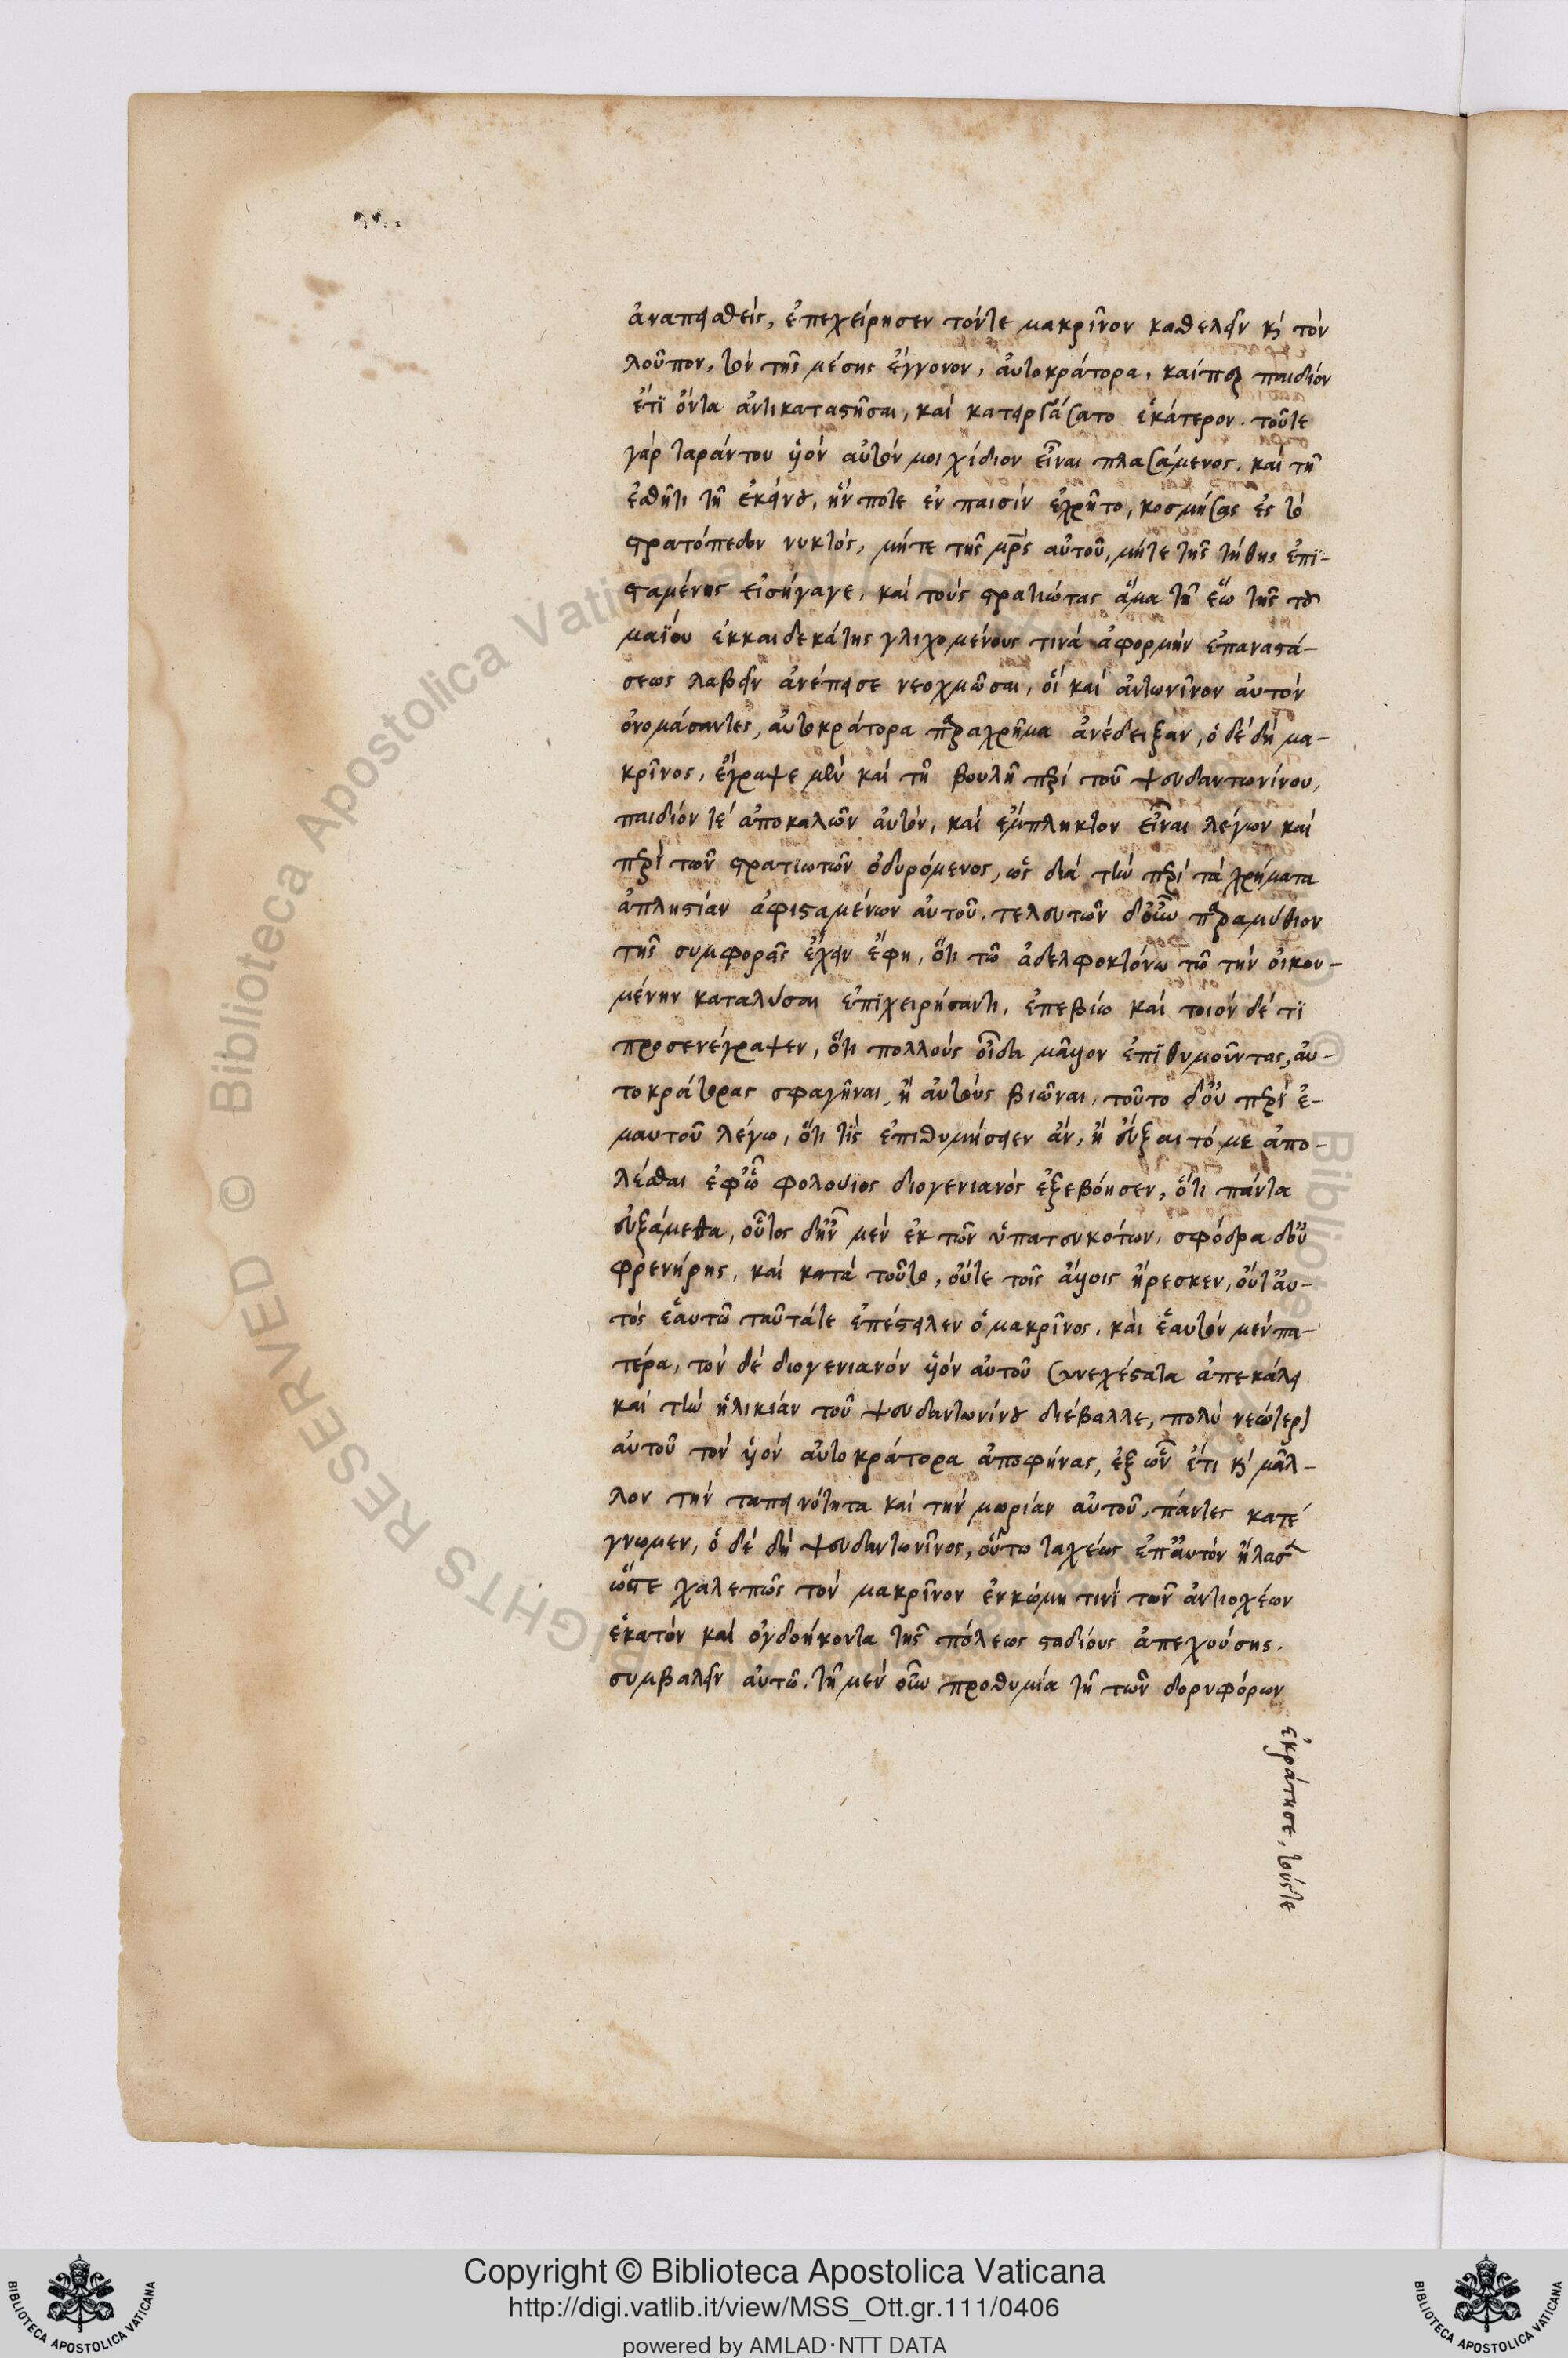 ἀναπεισθείς, ἐπεχείρησεν τόντε μακρῖνον καθελεῖν κὶ τὸν
λοῦπον, τὸν τῆς μέσης ἔγγονον, αὐτοκράτορα, καίπερ παιδίον
ἔτϊ ὄντα ἀντικαταστῆσαι, καὶ κατειργάσατο ἑκάτερον. τοῦτε
γὰρ ταράντου ὑὸν αὐτὸν μοιχίδιον εἶναι πλασάμενος, καὶ τῆ
ἐσθῆτι τῆ ἐκείνου, ἥν ποτε ἐν παισὶν ἐχρῆτο, κοσμήσας ἐς τὸ
στρατόπεδον νυκτὸς, μήτε τῆς μρς αὐτοῦ, μήτε τῆς τήθης ἐπϊ-
σταμένης εἰσήγαγε, καὶ τοὺς στρατιώτας ἅμα τῆ ἕω τῆς τοῦ
μαΐου ἑκκαιδεκάτης γλιχομένους τινὰ ἀφορμὴν ἐπαναστά-
σεως λαβεῖν ἀνέπεισε νεοχμῶσαι, οἳ καὶ ἀντωνῖνον αὐτὸν
ὀνομάσαντες, αὐτοκράτορα παραχρῆμα ἀνέδειξαν, ὁ δὲ δὴ μα-
κρῖνος, ἔγραψε μὲν καὶ τῆ βουλῆ περὶ τοῦ ψευδαντωνίνου,
παιδίον τὲ ἀποκαλῶν αὐτὸν, καὶ ἔμπληκτον εἶναι λέγων καὶ
περὶ τῶν στρατιωτῶν ὀδυρόμενος, ὡς διὰ τὴν περὶ τὰ χρήματα
ἀπληστίαν ἀφισταμένων αὐτοῦ. τελευτῶν δ'οὖν παραμύθιον
τῆς συμφορᾶς ἔχειν ἔφη, ὅτι τῶ ἀδελφοκτόνω τῶ τὴν οἰκου-
μένην καταλῦσαι ἐπϊχειρήσαντι, ἐπεβίω καὶ τοιόν δέ τϊ
προσενέγραψεν, ὅτι πολλοὺς οἶδα μᾶλλον ἐπϊθυμοῦντας, αὐ-
τοκράτορας σφαγῆναι, ἢ αὐτοὺς βιῶναι, τοῦτο δ'οὐ περὶ ἐ-
μαυτοῦ λέγω, ὅτι τὶς ἐπιθυμήσειεν ἂν, ἢ εὔξαιτό με ἀπο-
λέσθαι ἐφ'ὧ φολούϊος διογενιανὸς ἐξεβόησεν, ὅτι πάντα
εὐξάμεθα, οὗτος δ'ἦν μὲν ἐκ τῶν ὑπατευκότων, σφόδρα δ'οὐ
φρενήρης, καὶ κατὰ τοῦτο, οὔτε τοῖς ἄλλοις ἤρεσκεν, οὔτ'αὐ-
τὸς ἑαυτῶ ταῦτάτε ἐπέστειλεν ὁ μακρῖνος, καὶ ἑαυτὸν μὲν πα-
τέρα, τὸν δὲ διογενιανὸν ὑὸν αὐτοῦ συνεχέστατα ἀπεκάλει
καὶ τὴν ἡλικίαν τοῦ ψευδαντωνίνου διέβαλλε, πολὺ νεώτερον
αὐτοῦ τὸν ὑὸν αὐτοκράτορα ἀποφήνας, ἐξ ὧν ἔτι κὶ μᾶλ-
λον τὴν ταπεινότητα καὶ τὴν μωρίαν αὐτοῦ, πάντες κατέ
γνωμεν, ὁ δὲ δὴ ψευδαντωνῖνος, οὕτω ταχέως ἐπ'αὐτὸν ἤλασεν
ὥστε χαλεπῶς τὸν μακρῖνον ἐν κώμη τινὶ τῶν ἀντιοχέων
ἑκατὸν καὶ ὀγδοήκοντα τῆς πόλεως σταδίους ἀπεχούσης.
συμβαλεῖν αὐτῶ. τῆ μὲν οὖν προθυμία τῆ τῶν δορυφόρων
ἐκράτησε, τούςτε